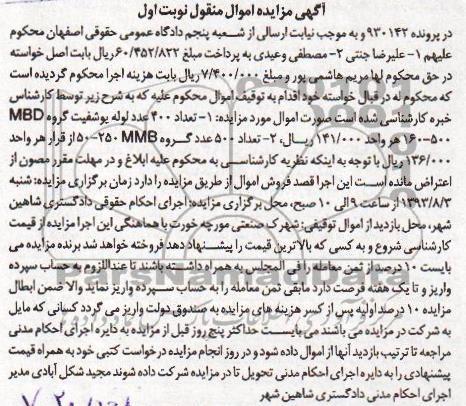 آگهی مزایده اموال منقول نوبت اول
در پرونده ۹۳۰۱۴۲ و به موجب نیابت ارسالی از شعبه پنجم دادگاه عمومی حقوقی اصفهان محکوم
علیهم ۱- علیرضا جنتی ۲- مصطفی وعیدی به پرداخت مبلغ ۶۰/۴۵۲/۸۲۲ ریال بابت اصل خواسته
در حق محکوم لها مریم هاشمی پور و مبلغ ۷/۴۰۰/۰۰۰ ریال بابت هزینه اجرا محکوم گردیده است
که محکوم له در قبال خواسته خود اقدام به توقیف اموال محکوم علیه که به شرح زیر توسط کارشناس
خبره کارشناسی شده است صورت اموال مورد مزایده: ۱- تعداد ۴۰۰ عدد لوله پوشفیت گروه MBD
۵۰۰-۱۶۰ هر واحد ۱۴۱/۰۰۰ ریال، ۲- تعداد ۵۰۰ عدد گروه MMB ۲۵۰-۵۰ از قرار هر واحد
۱۳۶/۰۰۰ ریال با توجه به اینکه نظریه کارشناسی به محکوم علیه ابلاغ و در مهلت مقرر مصون از
اعتراض مانده است این اجرا قصد فروش اموال از طریق مزایده را دارد زمان برگزاری مزایده: شنبه
۱۳۹۳/۸/۳ از ساعت ۹ الی ۱۰ صبح، محل برگزاری مزایده: اجرای احکام حقوقی دادگستری شاهین
شهر، محل بازدید از اموال توقیفی: شهرک صنعتی مورچه خورت با هماهنگی این اجرا مزایده از قیمت
کارشناسی شروع و به کسی که بالاترین قیمت را پیشنهاد دهد فروخته خواهد شد برنده مزایده می
بایست ۱۰ درصد از ثمن معامله را فی المجلس به همراه داشته باشند تا عنداللزوم به حساب سپرده
واریز و تا یک هفته فرصت دارد مابقی ثمن معامله را به حساب سپرده واریز نماید والا ضمن ابطال
مزایده ۱۰ درصد اولیه پس از کسر هزینه های مزایده به صندوق دولت واریز می گردد کسانی که مایل
به شرکت در مزایده می باشند می بایست حداکثر پنج روز قبل از مزایده به دایره اجرای احکام مدنی
مراجعه تا ترتیب بازدید آنها از اموال داده شود و در روز انجام مزایده درخواست کتبی خود به همراه قیمت
پیشنهادی را به دایره اجرای احکام مدنی تحویل تا در مزایده شرکت داده شوند مجید شکل آبادی مدیر
اجرای احکام مدنی دادگستری شاهین شهر